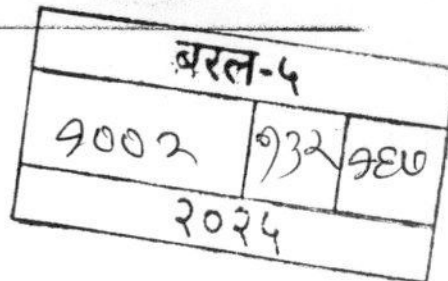 बरल-५
१००२ १३२ १६७
२०२५